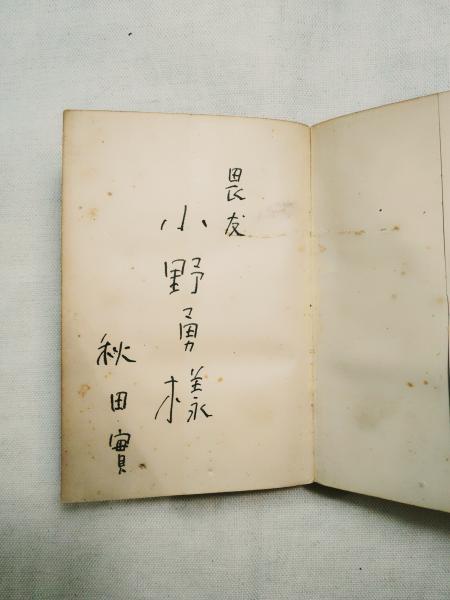 畏友
小野勇様
秋田實